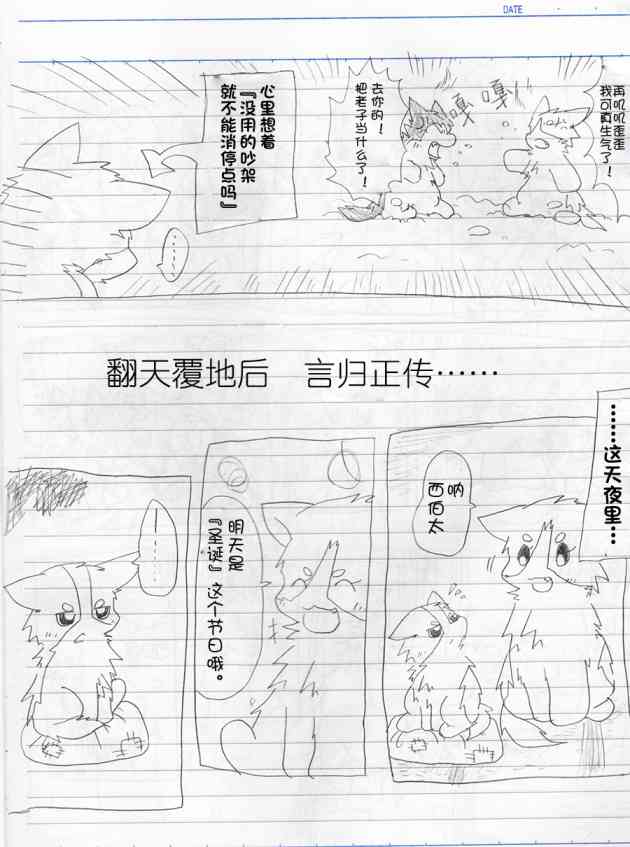 DATE
再吼吼歪歪
我可真生气了！
嘎
嘎
去你的！
把老子当什么了！
心里想着
『没用的吵架
就不能消停点吗』
……
翻天覆地后　言归正传……
……这天夜里…
呐
西伯太
明天是
『圣诞』这个节日哦。
……